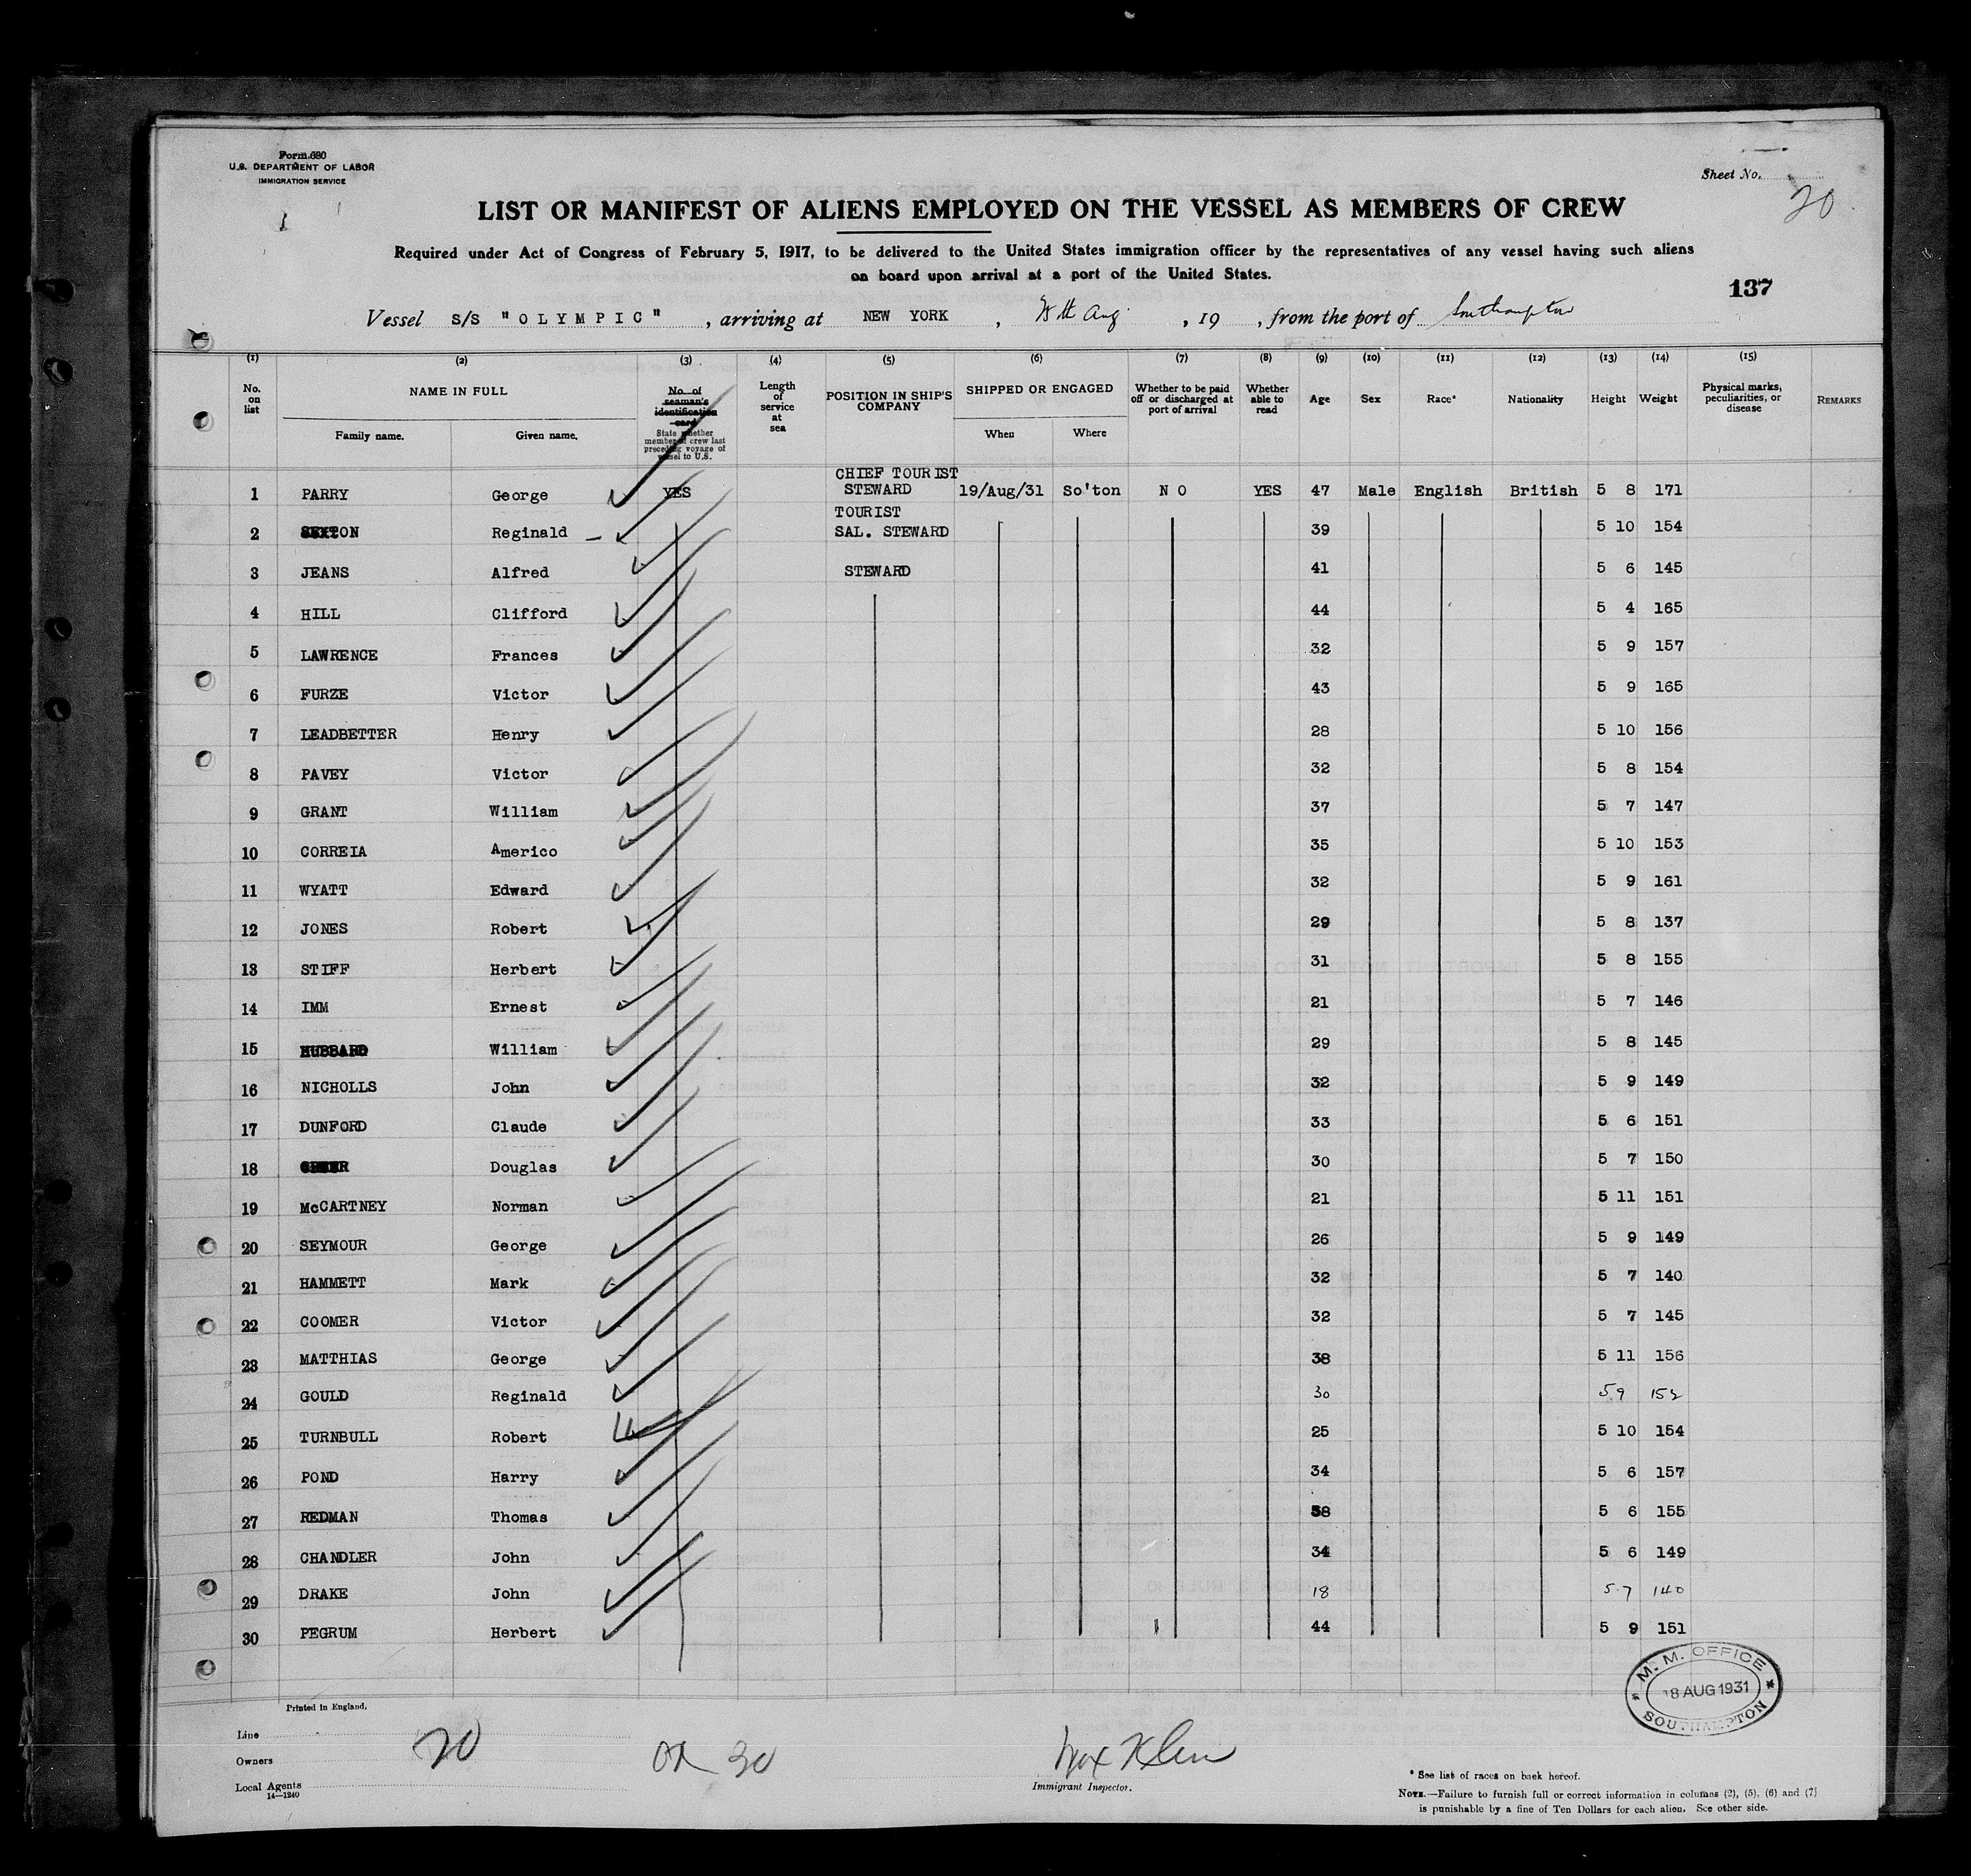 Form 680
U.S. DEPARTMENT OF LABOR
IMMIGRATION SERVICE
Sheet No.
20
LIST OR MANIFEST OF ALIENS EMPLOYED ON THE VESSEL AS MEMBERS OF CREW
Required under Act of Congress of February 5, 1917, to be delivered to the United States immigration officer by the representatives of any vessel having such aliens
on board upon arrival at a port of the United States.
137
Vessel S/S "OLYMPIC", arriving at NEW YORK, Aug, 19 , from the port of Southampton
(1) (2) (3) (4) (5) (6) (7) (8) (9) (10) (11) (12) (13) (14) (15)
No. on list NAME IN FULL Family name. Given name. No. of seaman's identification card State whether member of crew last preceding voyage of vessel to U.S. Length of service at sea POSITION IN SHIP'S COMPANY SHIPPED OR ENGAGED When Where Whether to be paid off or discharged at port of arrival Whether able to read Age Sex Race* Nationality Height Weight Physical marks, peculiarities, or disease REMARKS
1 PARRY George YES CHIEF TOURIST STEWARD 19/Aug/31 So'ton N O YES 47 Male English British 5 8 171
2 SEXTON Reginald TOURIST SAL. STEWARD 39 5 10 154
3 JEANS Alfred STEWARD 41 5 6 145
4 HILL Clifford 44 5 4 165
5 LAWRENCE Frances 32 5 9 157
6 FURZE Victor 43 5 9 165
7 LEADBETTER Henry 28 5 10 156
8 PAVEY Victor 32 5 8 154
9 GRANT William 37 5 7 147
10 CORREIA Americo 35 5 10 153
11 WYATT Edward 32 5 9 161
12 JONES Robert 29 5 8 137
13 STIFF Herbert 31 5 8 155
14 IMM Ernest 21 5 7 146
15 HUBBARD William 29 5 8 145
16 NICHOLLS John 32 5 9 149
17 DUNFORD Claude 33 5 6 151
18 Douglas 30 5 7 150
19 McCARTNEY Norman 21 5 11 151
20 SEYMOUR George 26 5 9 149
21 HAMMETT Mark 32 5 7 140
22 COOMER Victor 32 5 7 145
23 MATTHIAS George 38 5 11 156
24 GOULD Reginald 30 5.9 152
25 TURNBULL Robert 25 5 10 154
26 POND Harry 34 5 6 157
27 REDMAN Thomas 38 5 6 155
28 CHANDLER John 34 5 6 149
29 DRAKE John 18 5.7 140
30 PEGRUM Herbert 44 5 9 151
M. M. OFFICE
18 AUG 1931
SOUTHAMPTON
Printed in England.
Line
Owners
Local Agents
14—1240
20
30
Max Klein
Immigrant Inspector.
* See list of races on back hereof.
NOTE.—Failure to furnish full or correct information in columns (2), (5), (6) and (7)
is punishable by a fine of Ten Dollars for each alien. See other side.